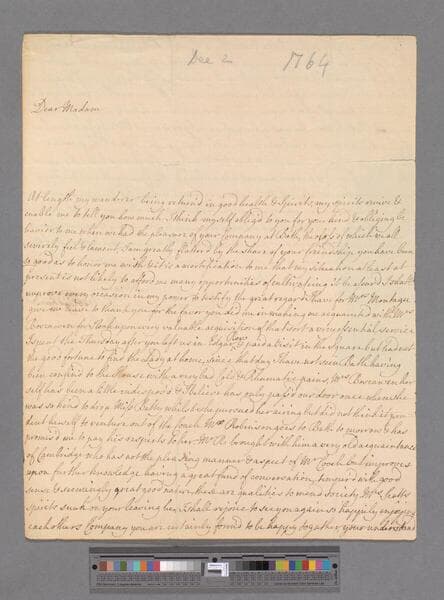 Dec 2 1764
Dear Madam
At length my wanderer being return'd in good health & Spirits, my spirits revive &
enable me to tell you how much I think myself oblig'd to you for your kind & obliging be
havior to me when we had the pleasure of your Company at Bath, the loss of which we all
severely feel & lament, I am greatly flatterd by the Share of your friendship you have been
so good as to honor me with & it is a mortification to me that my situation at least at
present is not likely to afford me many opportunities of cultivating it be assur'd I shall
improve every occasion in my power to testify the great regard I have for Mrs Montagu
give me leave to thank you for the favor you did me in making me acquainted with Mrs
I look upon every valuable acquisition of that sort a very essential service
I spent the Thursday after you left us in Edgar Row and a Visit in the Square but had not
the good fortune to find the Lady at home, since that day I have not seen Bath having
been confin'd to the House with a very bad Cold & Rheumatic pains, Mrs her
self has been a little indispos'd & I believe has only pass'd our door once when she
was so kind to drop Miss whilst she pursued her airing but did not think it pru
dent herself to venture out of the Coach. Mrs Robinson goes to Bath to morrow & has
promis'd me to pay his respects to her Mr R. brought with him a very old acquaintance
of Cambridge who has not the pleasing manner & aspect of Mr but improves
upon further knowledge having a great fund of conversation, temper'd with good
sense & seemingly great good nature, these are qualities to mend society. Mrs Scotts
spirits sunk on your leaving her, I shall rejoice to see you again so happily enjoying
each others Company you are certainly form'd to be happy together your understand